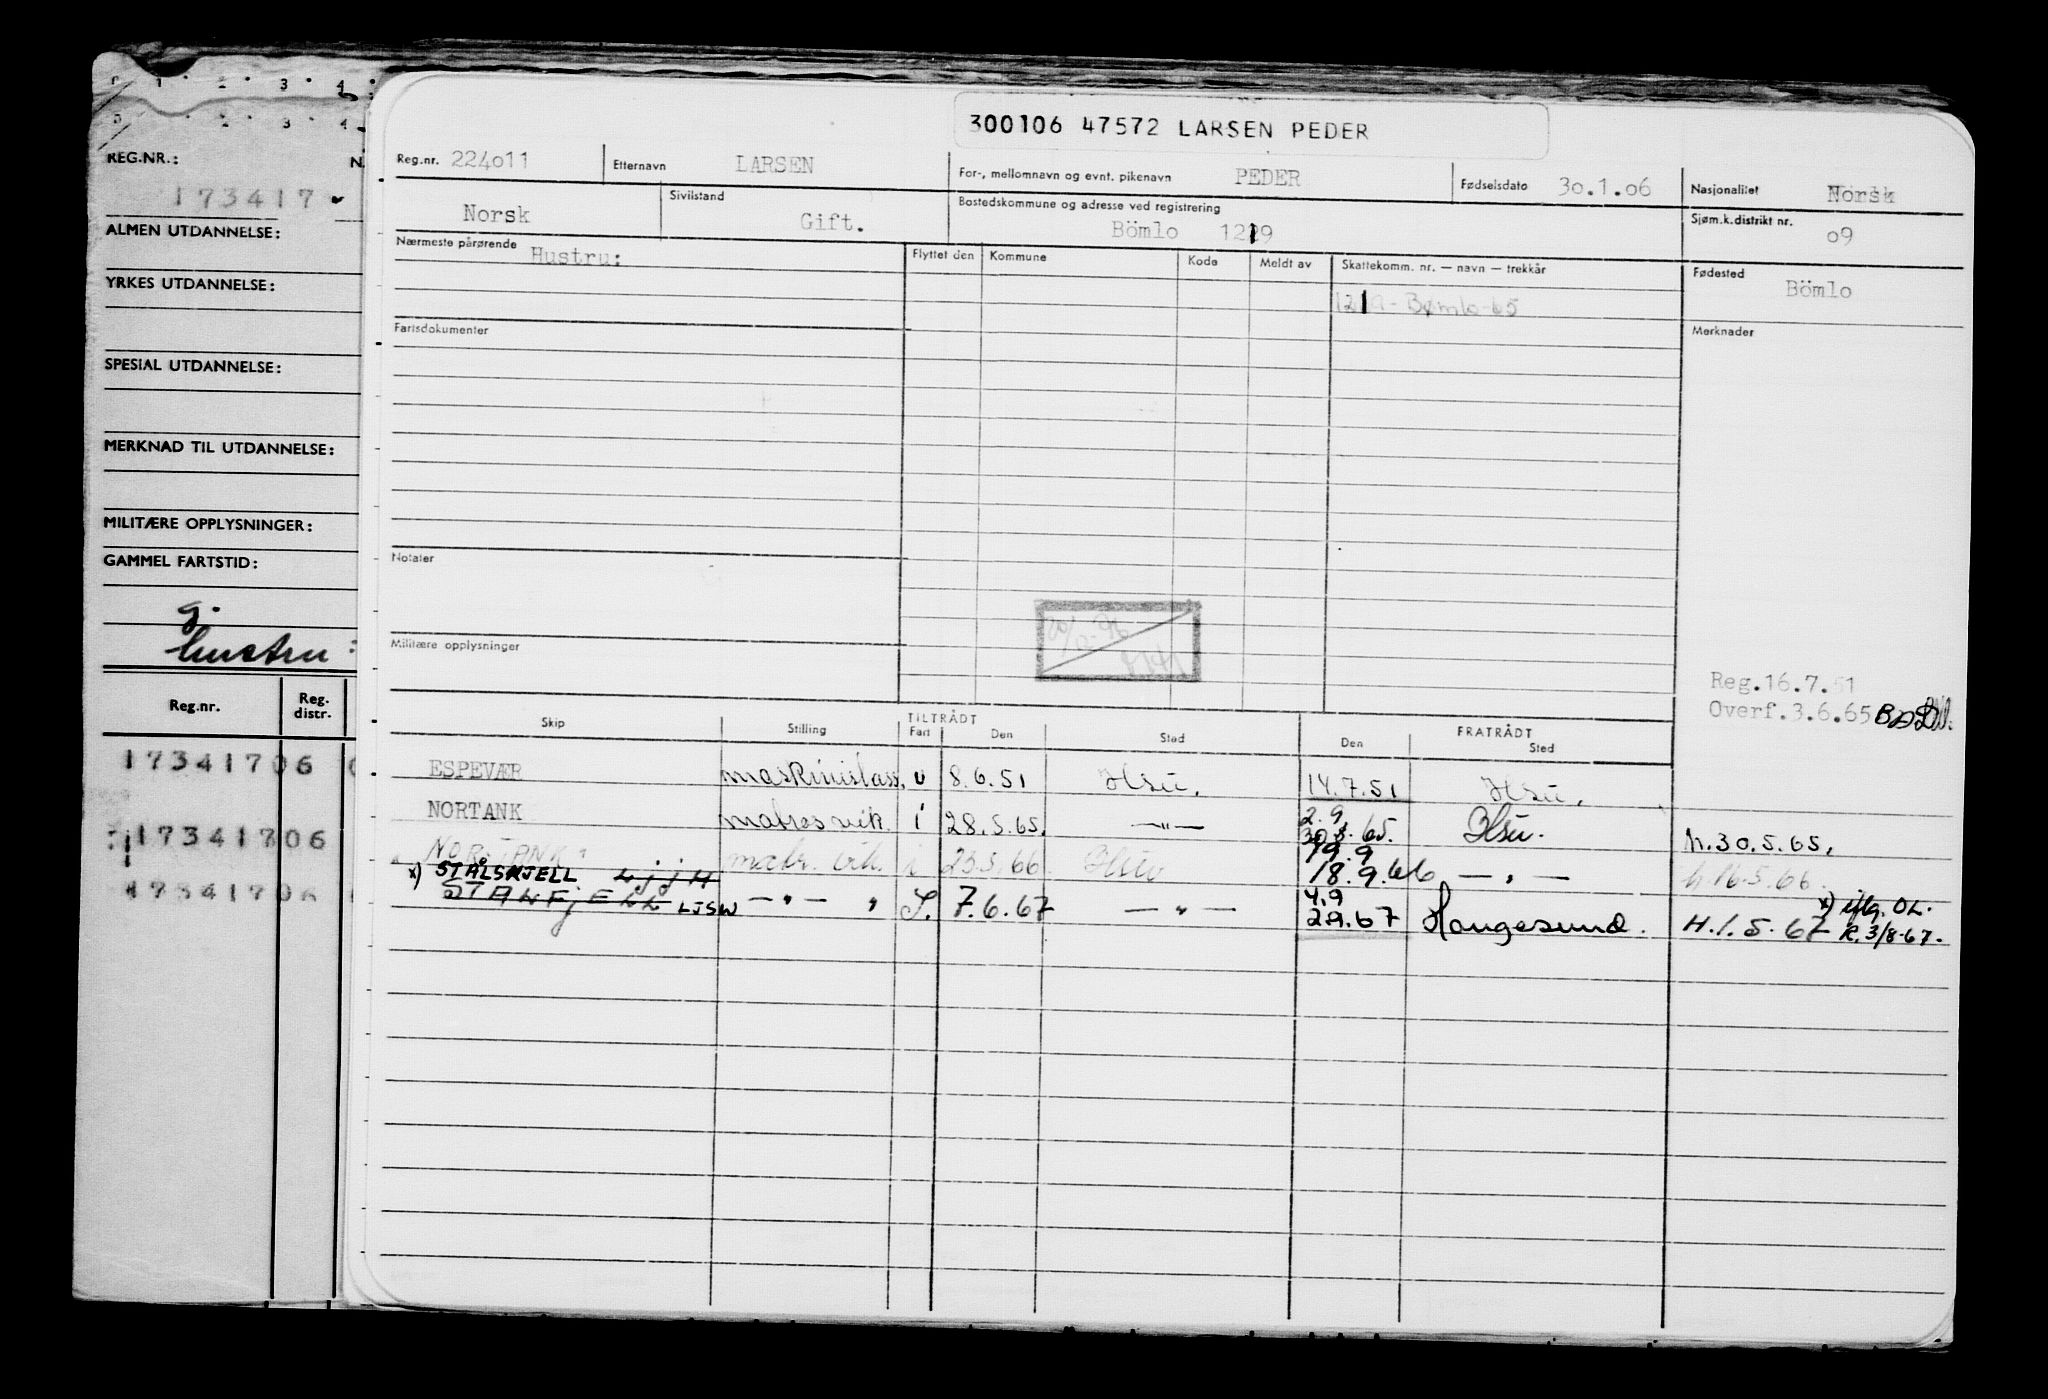 0 1 2 3 4
0 2 3 4
REG.NR.:
173417
ALMEN UTDANNELSE:
YRKES UTDANNELSE:
SPESIAL UTDANNELSE:
MERKNAD TIL UTDANNELSE:
MILITÆRE OPPLYSNINGER:
GAMMEL FARTSTID:
g.
hustru:
Reg.nr. Reg. distr.
17341706
17341706
17341706
300106 47572 LARSEN PEDER
Reg.nr. 224011 Etternavn LARSEN For-, mellomnavn og evnt. pikenavn PEDER Fødselsdato 30.1.06 Nasjonalitet Norsk
Norsk Sivilstand Gift. Bostedskommune og adresse ved registrering Bömlo 1219 Sjøm.k.distrikt nr. 09
Nærmeste pårørende Hustru: Flyttet den Kommune Kode Meldt av Skattekomm. nr. — navn — trekkår Fødested Bömlo
1219 - Bømlo - 65
Fartsdokumenter Merknader
Notater
Militære opplysninger
Reg.16.7.51
Overf.3.6.65
Skip Stilling TILTRÅDT Fart Den Sted FRATRÅDT Den Sted
ESPEVÆR maskinistass. u 8.6.51 Hsu. 14.7.51 Hsu.
NORTANK matros vik. i 28.5.65. —"— 2.9. 65. Hsu. h.30.5.65.
NORTANK matr. vik. i 23.5.66 Hsu 19.9 18.9.66 — " — h.16.5.66.
x) STÅLSKJELL
LJSW — " — " 7.6.67 — " — 4.9 2.9.67 Haugesund. H.1.5.67 x) iflg. OL.
R.3/8-67.